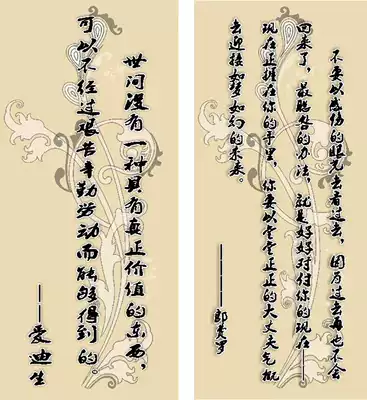 世间没有一种具有真正价值的东西，
可以不经过艰苦辛勤劳动而能够得到的。
——爱迪生
不要以感伤的眼光去看过去，因为过去再也不会
回来了，最聪明的办法，就是好好对付你的现在——
现在正握在你的手里，你要以堂堂正正的大丈夫气概
去迎接如梦如幻的未来。
————郎费罗